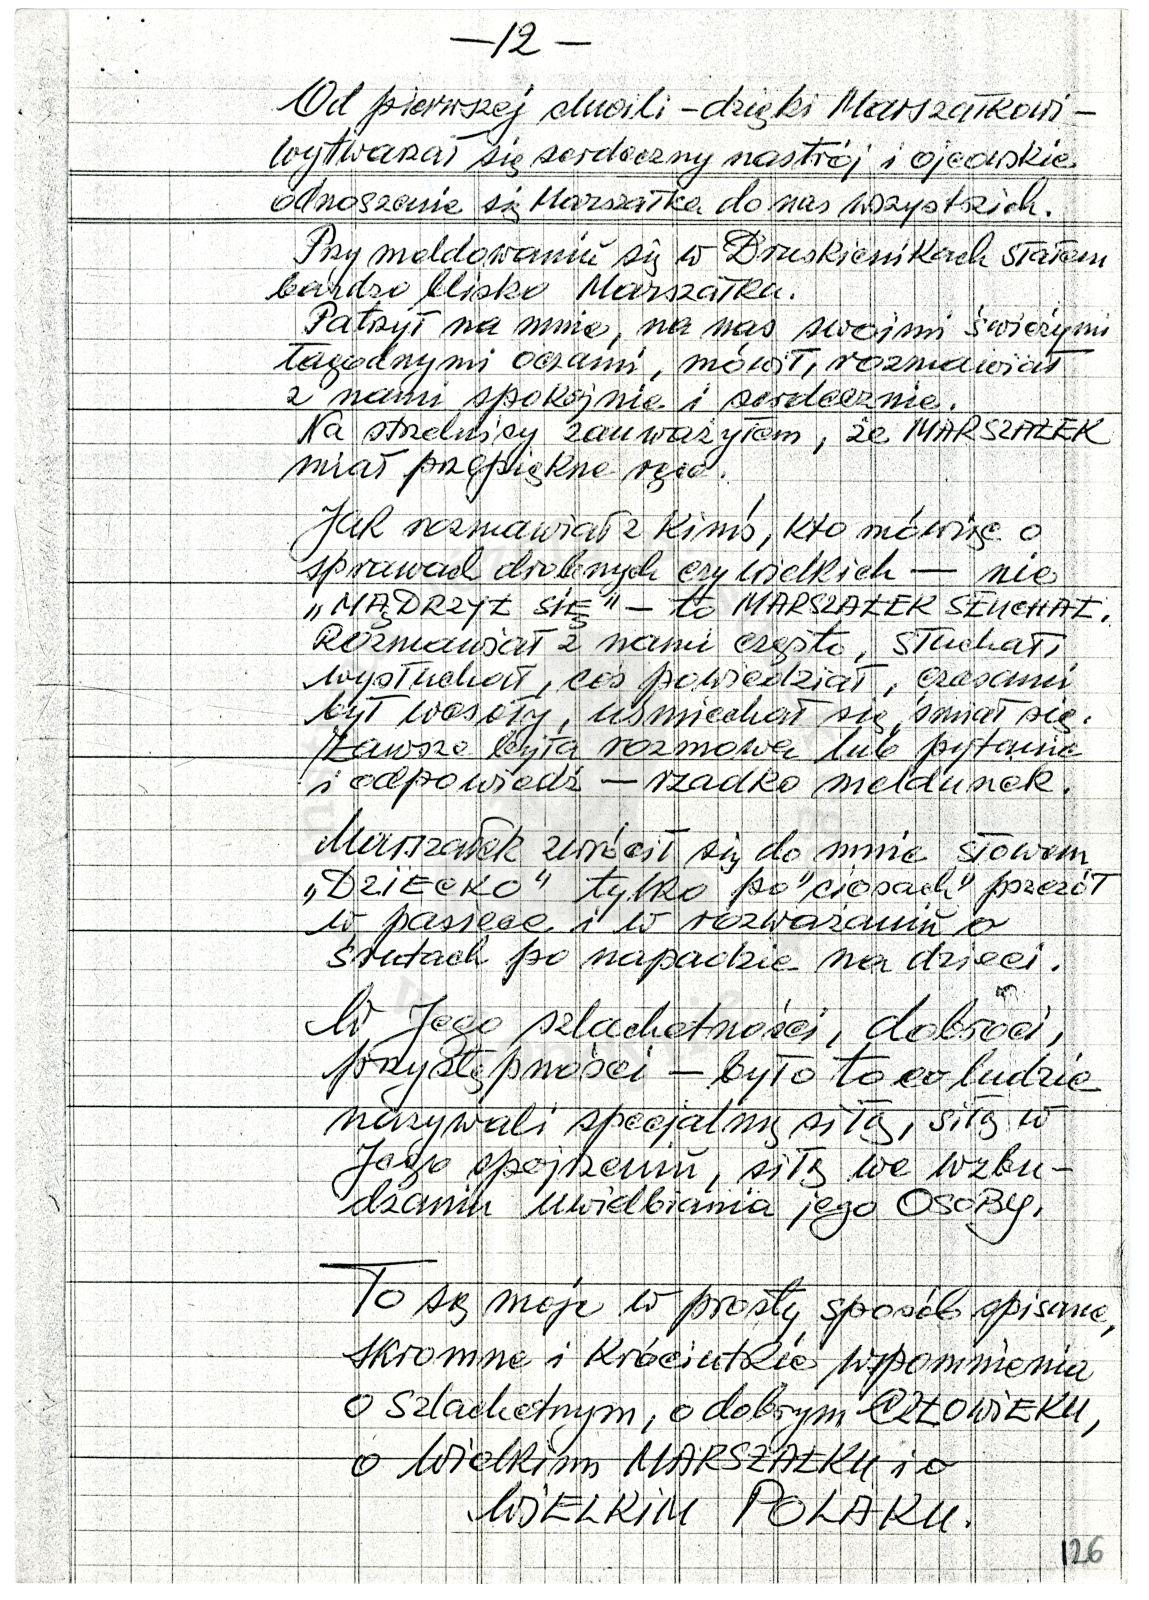 —12—
Od pierwszej chwili – dzięki Marszałkowi –
wytwarzał się serdeczny nastrój i ojcowskie
odnoszenie się Marszałka do nas wszystkich.
Przy meldowaniu się w Druskienikach stałem
bardzo blisko Marszałka.
Patrzył na mnie, na nas swoimi świeżymi
łagodnymi oczami, mówił, rozmawiał
z nami spokojnie i serdecznie.
Na strzelnicy zauważyłem, że MARSZAŁEK
miał przepiękne ręce.
Jak rozmawiał z kimś, kto mówiąc o
sprawach drobnych czy wielkich — nie
„MĄDRZYŁ SIĘ" – to MARSZAŁEK SŁUCHAŁ.
Rozmawiał z nami często, słuchał,
wysłuchał, coś powiedział, czasami
był wesoły, uśmiechał się, śmiał się.
Zawsze była rozmowa lub pytanie
i odpowiedź — rzadko meldunek.
Marszałek zwrócił się do mnie słowem
„DZIECKO" tylko po "ciosach" pszczół
w pasiece i w rozważaniu o
śrutach po napadzie na dzieci.
W Jego szlachetności, dobroci,
przystępności — było to co ludzie
nazywali specjalną siłą, siłą w
Jego spojrzeniu, siłą we wzbu-
dzaniu uwielbiania jego OSOBY.
To są moje w prosty sposób opisane,
skromne i króciutkie wspomnienia
o szlachetnym, o dobrym CZŁOWIEKU,
o wielkim MARSZAŁKU i o
WIELKIM POLAKU.
126